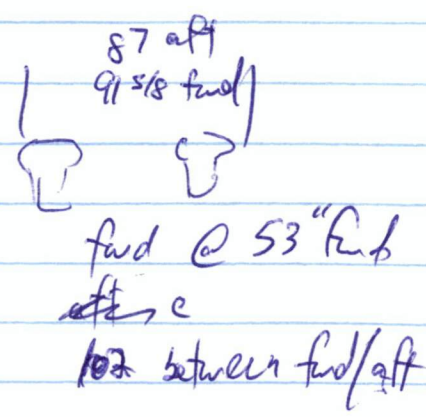 87 aft
91 5/8 fwd
fwd @ 53"
aft @
between fwd/aft